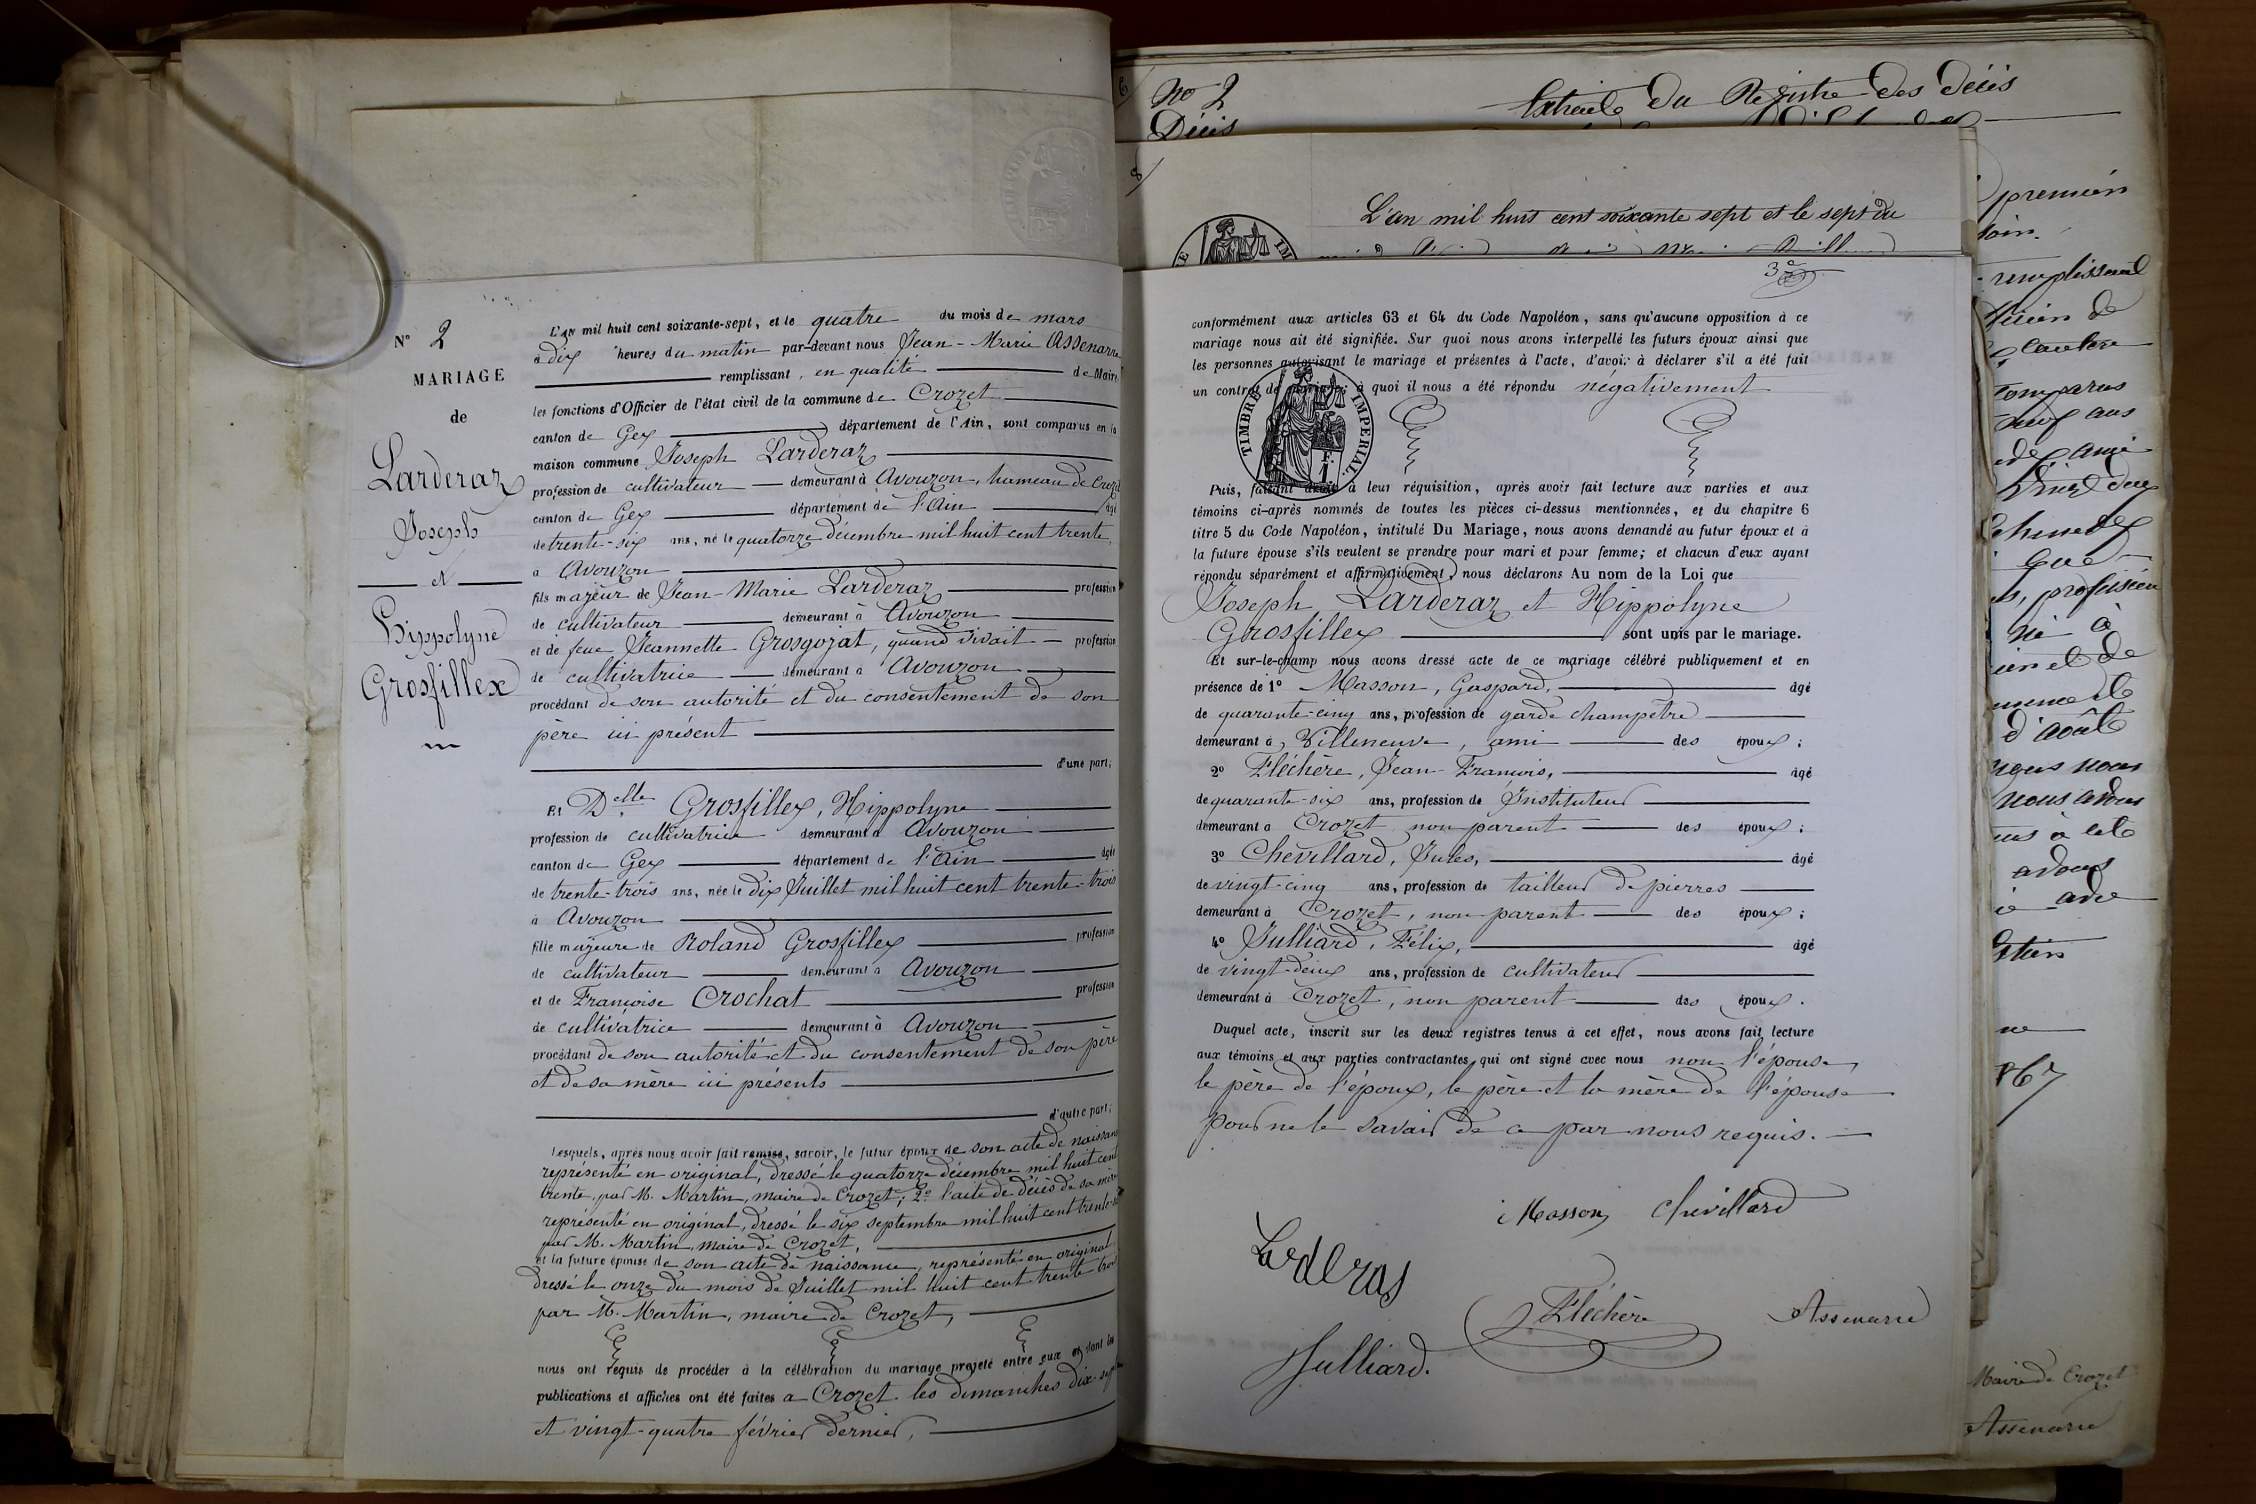 N° 2
MARIAGE
de
Larderaz
Joseph
et
Hippolyne
Grosfillex
L'an mil huit cent soixante-sept, et le quatre du mois de mars
à dix heures du matin par-devant nous Jean-Marie Assenarre
remplissant, en qualité de Maire
les fonctions d'Officier de l'état civil de la commune de Crozet
canton de Gex département de l'Ain, sont comparus en la
maison commune Joseph Larderaz
profession de cultivateur demeurant à Avouzon, hameau de Crozet
canton de Gex département de l'Ain âgé
de trente-six ans, né le quatorze décembre mil huit cent trente,
à Avouzon
fils majeur de Jean-Marie Larderaz profession
de cultivateur demeurant à Avouzon
et de feue Jeannette Grosgojat, quand vivait profession
de cultivatrice demeurant à Avouzon
procédant de son autorité et du consentement de son
père ici présent
d'une part;
Et Delle Grosfillex, Hippolyne
profession de cultivatrice demeurant à Avouzon
canton de Gex département de l'Ain âgée
de trente-trois ans, née le dix Juillet mil huit cent trente-trois
à Avouzon
fille majeure de Roland Grosfillex profession
de cultivateur demeurant à Avouzon
et de Françoise Crochat profession
de cultivatrice demeurant à Avouzon
procédant de son autorité et du consentement de son père
et de sa mère ici présents
d'autre part;
Lesquels, après nous avoir fait remise, savoir, le futur époux de son acte de naissance
représenté en original, dressé le quatorze décembre mil huit cent
trente, par M. Martin, maire de Crozet; 2° l'acte de décès de sa mère
représenté en original, dressé le six septembre mil huit cent
par M. Martin, maire de Crozet,
et la future épouse de son acte de naissance, représenté en original
dressé le onze du mois de Juillet mil huit cent trente trois
par M. Martin, maire de Crozet,
nous ont requis de procéder à la célébration du mariage projeté entre eux et dont les
publications et affiches ont été faites a Crozet les dimanches dix-sept
et vingt-quatre février dernier,
No 2 Extraits du Registre des Décès
Décès
8/
L'an mil huit cent soixante sept et le sept du
3e
conformément aux articles 63 et 64 du Code Napoléon, sans qu'aucune opposition à ce
mariage nous ait été signifiée. Sur quoi nous avons interpellé les futurs époux ainsi que
les personnes autorisant le mariage et présentes à l'acte, d'avoir à déclarer s'il a été fait
un contrat de mariage; à quoi il nous a été répondu négativement
TIMBRE IMPERIAL
Puis, faisant droit à leur réquisition, après avoir fait lecture aux parties et aux
témoins ci-après nommés de toutes les pièces ci-dessus mentionnées, et du chapitre 6
titre 5 du Code Napoléon, intitulé Du Mariage, nous avons demandé au futur époux et à
la future épouse s'ils veulent se prendre pour mari et pour femme; et chacun d'eux ayant
répondu séparément et affirmativement, nous déclarons Au nom de la Loi que
Joseph Larderaz et Hippolyne
Grosfillex sont unis par le mariage.
Et sur-le-champ nous avons dressé acte de ce mariage célébré publiquement et en
présence de 1° Masson, Gaspard, âgé
de quarante-cinq ans, profession de garde champêtre
demeurant à Villeneuve, ami des époux;
2° Fléchère, Jean-François, âgé
de quarante-six ans, profession de Instituteur
demeurant à Crozet non parent des époux;
3° Chevillard, Jules, âgé
de vingt-cinq ans, profession de tailleur de pierres
demeurant à Crozet, non parent des époux;
4° Julliard, Félix, âgé
de vingt-deux ans, profession de cultivateur
demeurant à Crozet, non parent des époux.
Duquel acte, inscrit sur les deux registres tenus à cet effet, nous avons fait lecture
aux témoins et aux parties contractantes, qui ont signé avec nous non l'épouse,
le père de l'époux, le père et la mère de l'épouse
pour ne le savoir de ce par nous requis.
Masson Chevillard
Larderas
J. Fléchère Assenarre
Julliard.
premier
remplissant
comparus
neuf ans
profession
né à
d'août
nous avons
867
Maire de Crozet
Assenarre